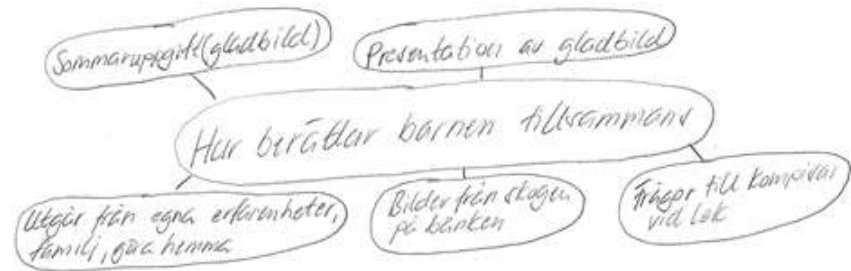 Sommaruppgift (gladbild)
Presentation av gladbild
Hur berättar barnen tillsammans
Utgår från egna erfarenheter,
familj, göra hemma
Bilder från skogen
på bänken
Frågor till kompisar
vid lek